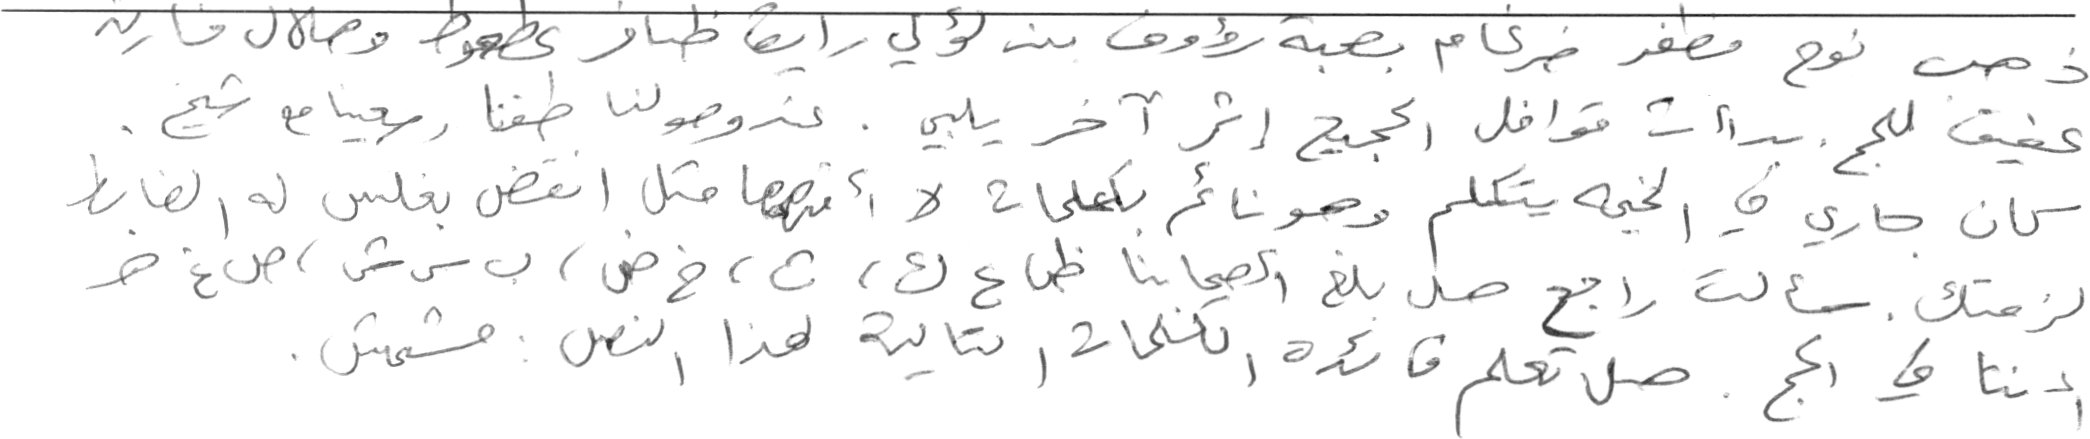 ذهب نوح مظفر ضرغام بصحبة رؤوف بن لؤي راجح ظافر عطعوط وهلال مازن
عفيف للحج. بدأت قوافل الحجيج إثر آخر يلبي. عند وصولنا طفنا وسعينا مع شيخ.
كان جاري في الخيمة يتكلم وهو نائم بكلمات لا أفهمها مثل انقض بغلس له الضابط
لزمتك. سألت راجح هل بلغ أصحابنا ظ ع ك، ث، خ ض، ب س ش، ص غ خ
إننا في الحج. هل تعلم فائدة الكلمات التالية لهذا النص: مشمش.